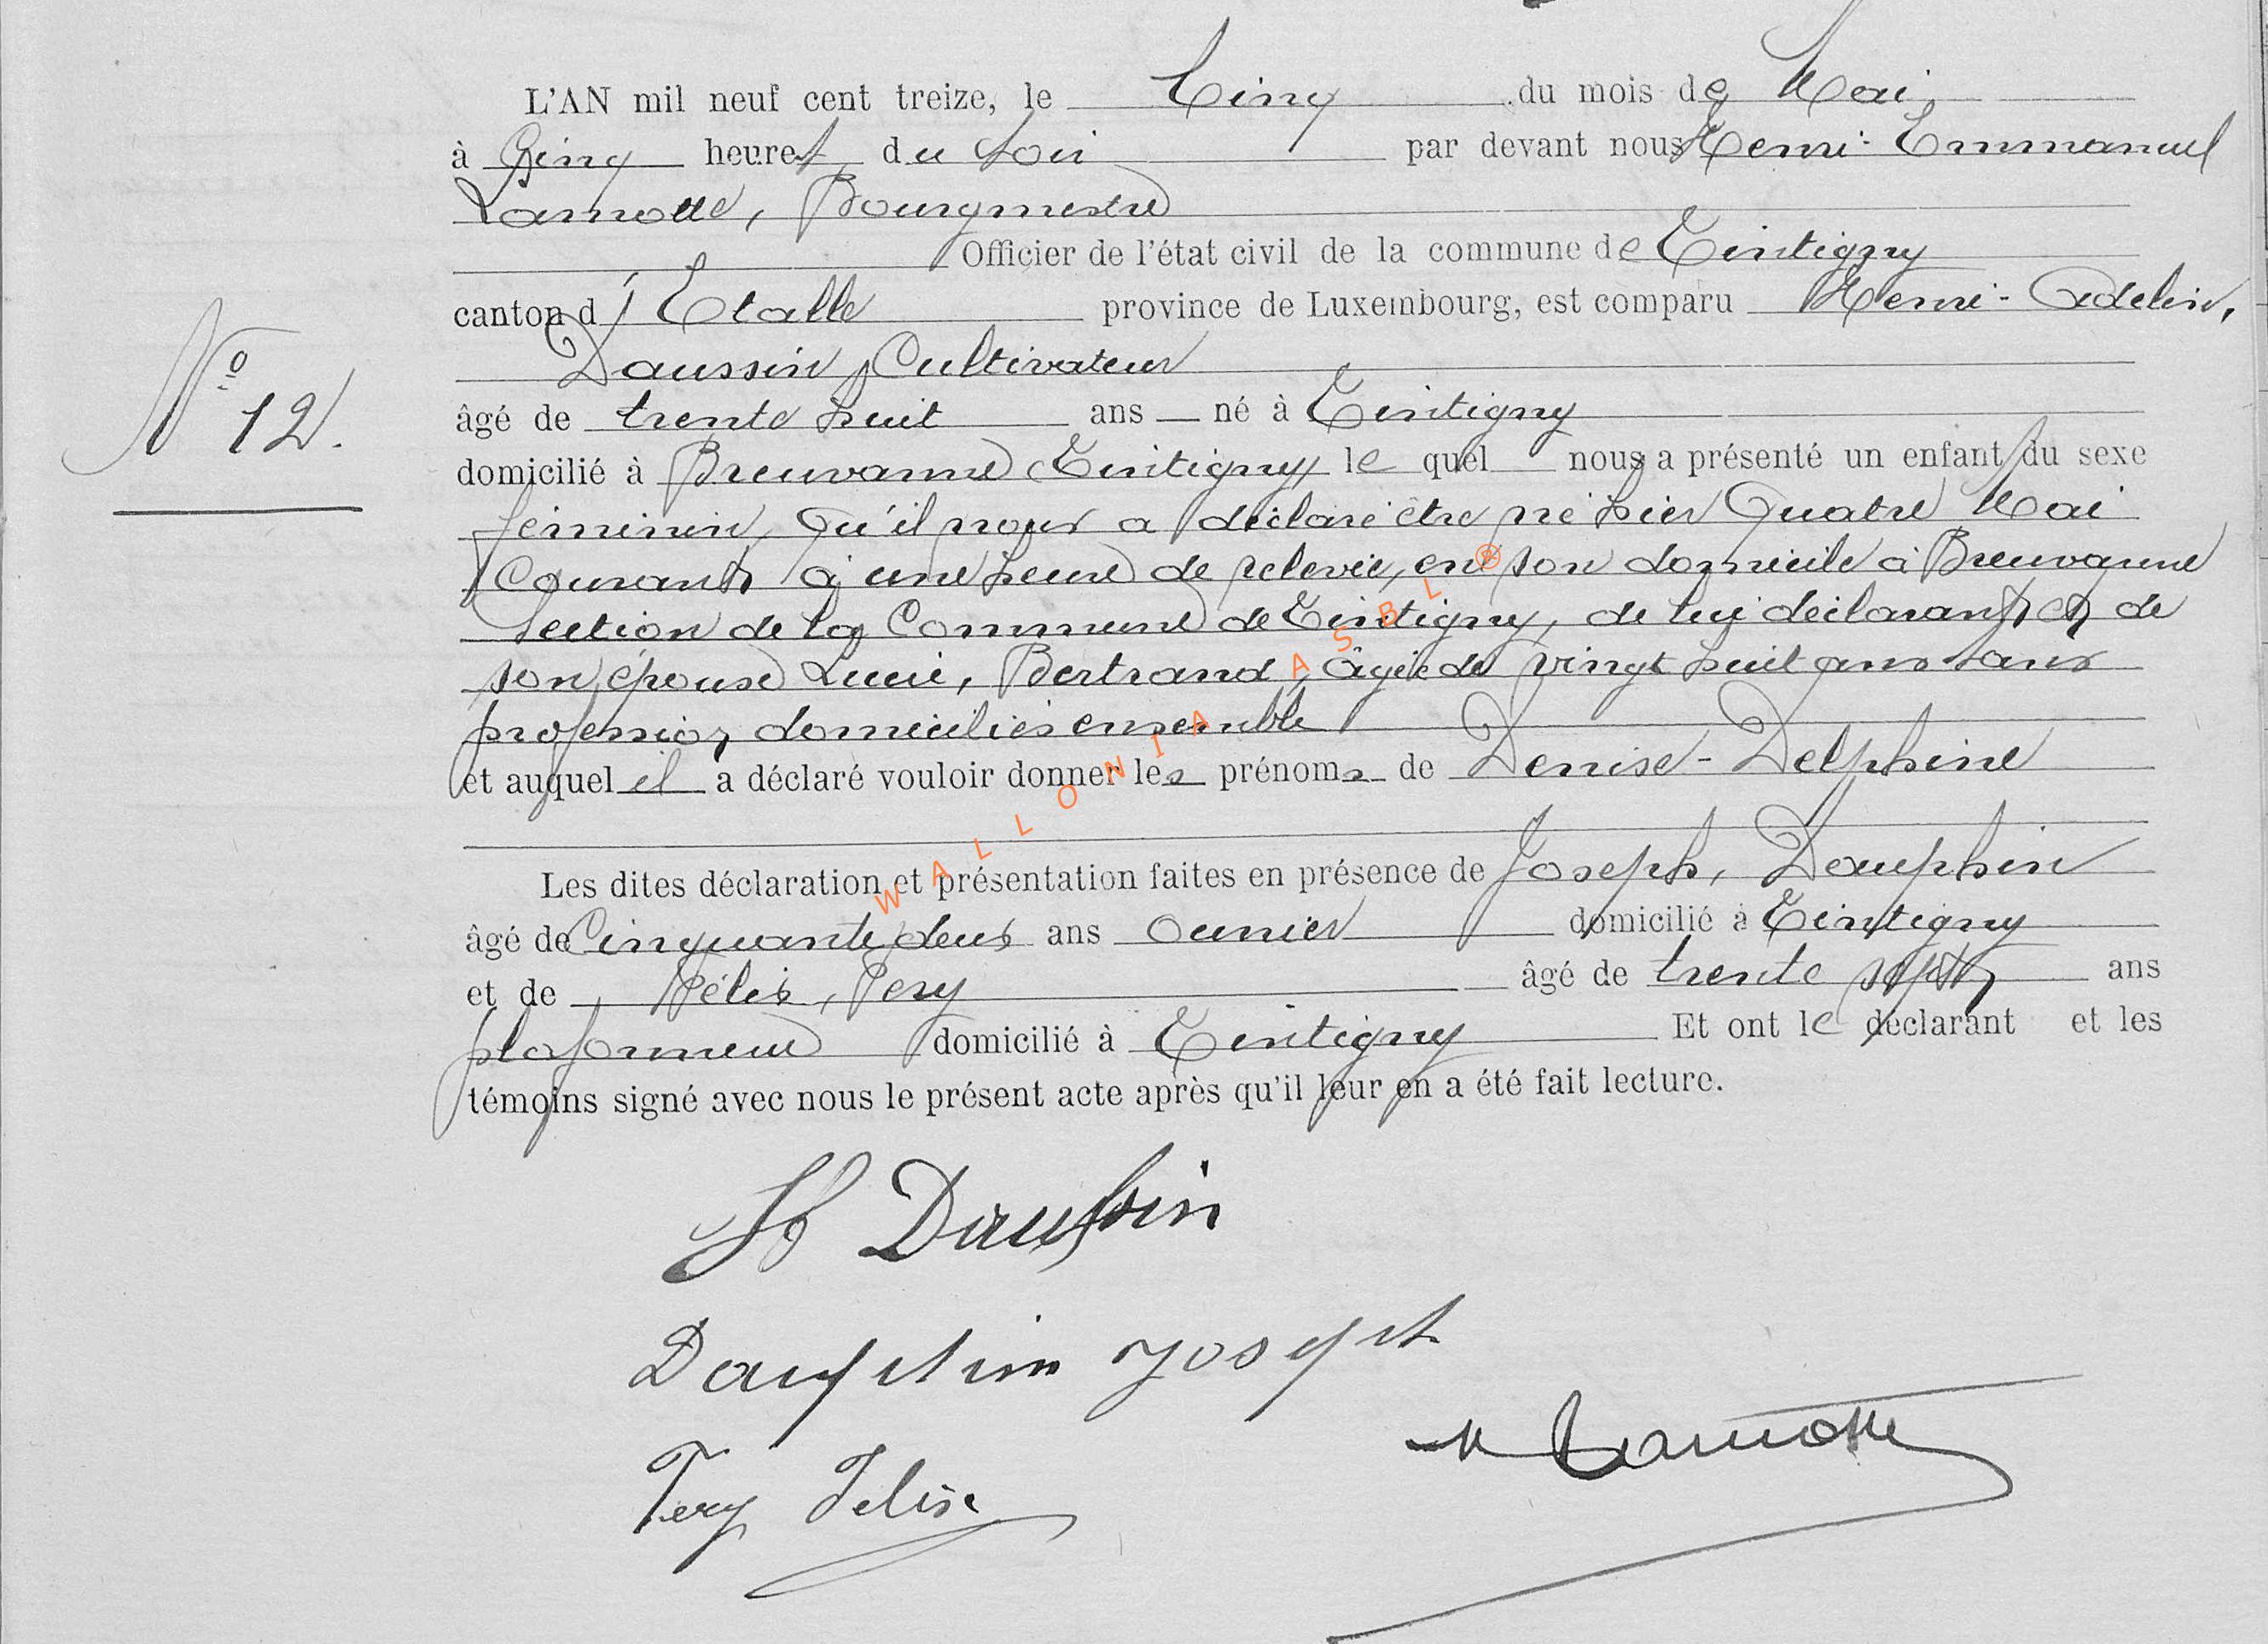 L'AN mil neuf cent treize, le Cinq du mois de Mai,
à Cinq heures du soir par devant nous Henri-Emmanuel
Lamotte, Bourgmestre
Officier de l'état civil de la commune de Tintigny
canton d'Etalle province de Luxembourg, est comparu Henri-Adelin,
Daussin, Cultivateur
âgé de trente huit ans né à Tintigny
domicilié à Breuvanne Tintigny lequel nous a présenté un enfant du sexe
féminin, qu'il nous a déclaré être né hier Quatre Mai
Courant, à une heure de relevée, en son domicile à Breuvanne
Section de la Commune de Tintigny, de lui déclarant et de
son épouse Lucie, Bertrand, âgée de vingt huit ans sans
profession, domiciliés ensemble
et auquel il a déclaré vouloir donner les prénoms de Denise-Delphine
Nº 12.
Les dites déclaration et présentation faites en présence de Joseph, Dauphin
âgé de Cinquante deux ans ouvrier domicilié à Tintigny
et de Félix, Tery âgé de trente sept ans
plafonneur domicilié à Tintigny Et ont le déclarant et les
témoins signé avec nous le présent acte après qu'il leur en a été fait lecture.
H Daussin
Dauphin Joseph
H Lamotte
Tery Felix
WALLONIA ASBL ®